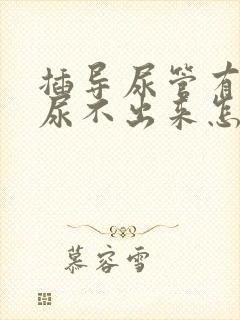 插导尿管有
尿不出来怎
慕容雪